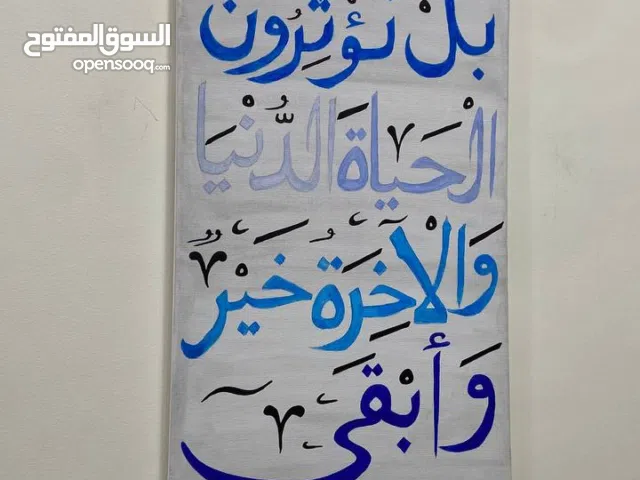 السوق المفتوح
opensooq.com
بَلْ تُؤْثِرُونَ
الْحَيَاةَ الدُّنْيَا
وَالْآخِرَةُ خَيْرٌ
وَأَبْقَى